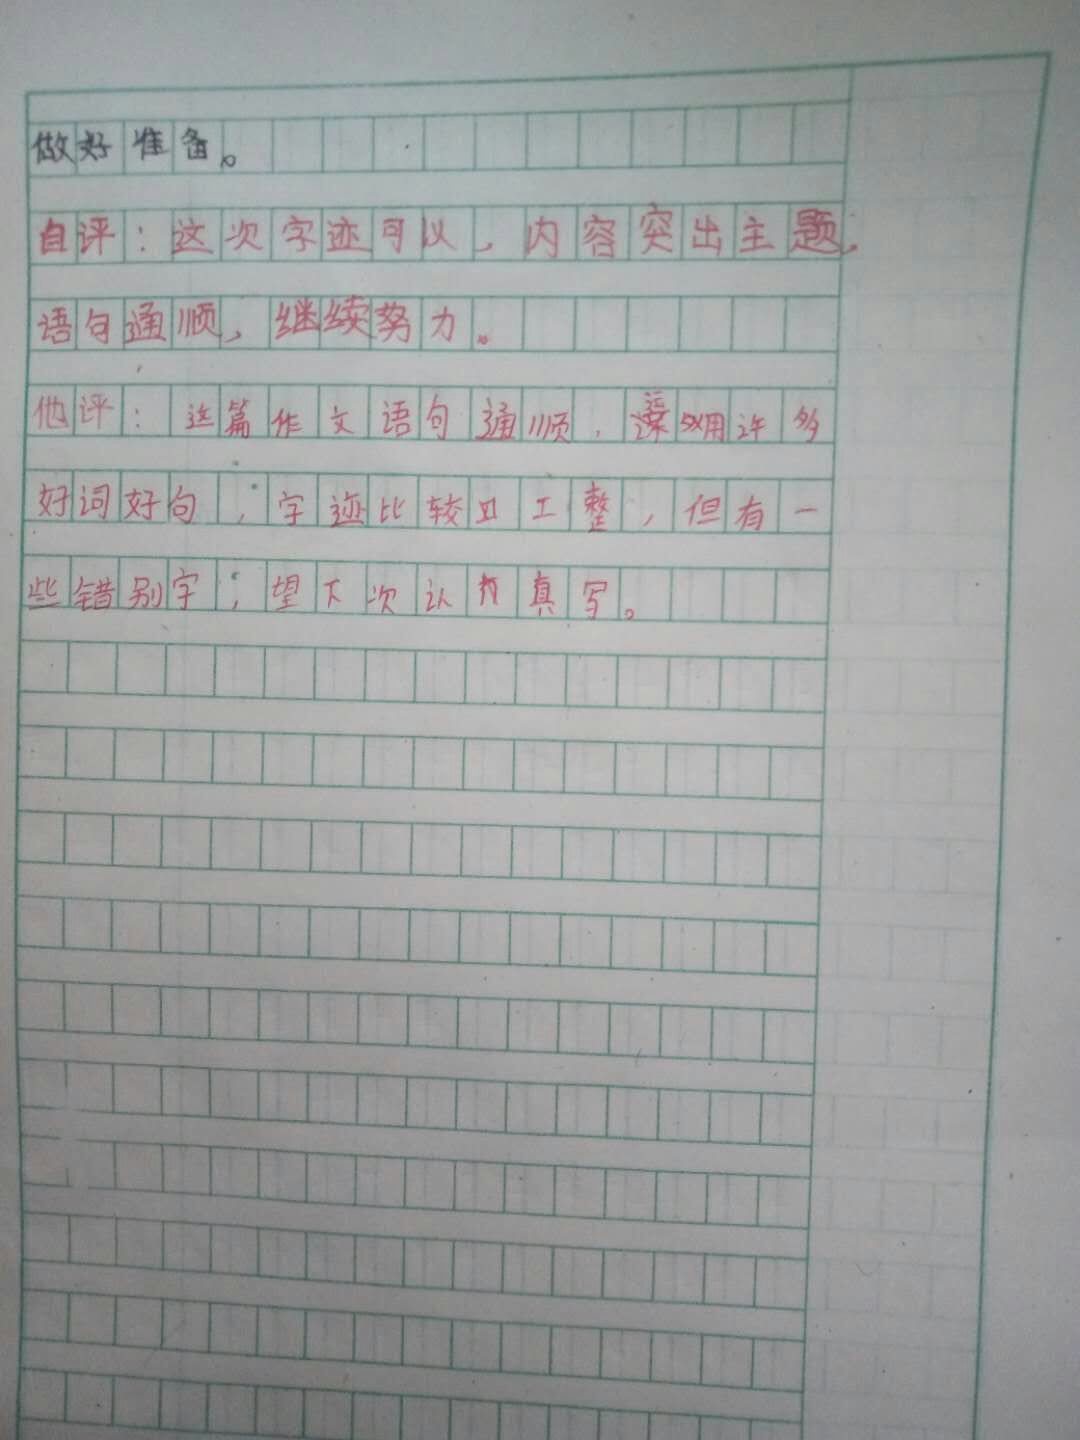 做好准备。
自评：这次字迹可以，内容突出主题，
语句通顺，继续努力。
他评：这篇作文语句通顺，运用许多
好词好句，字迹比较工整，但有一
些错别字，望下次认真写。